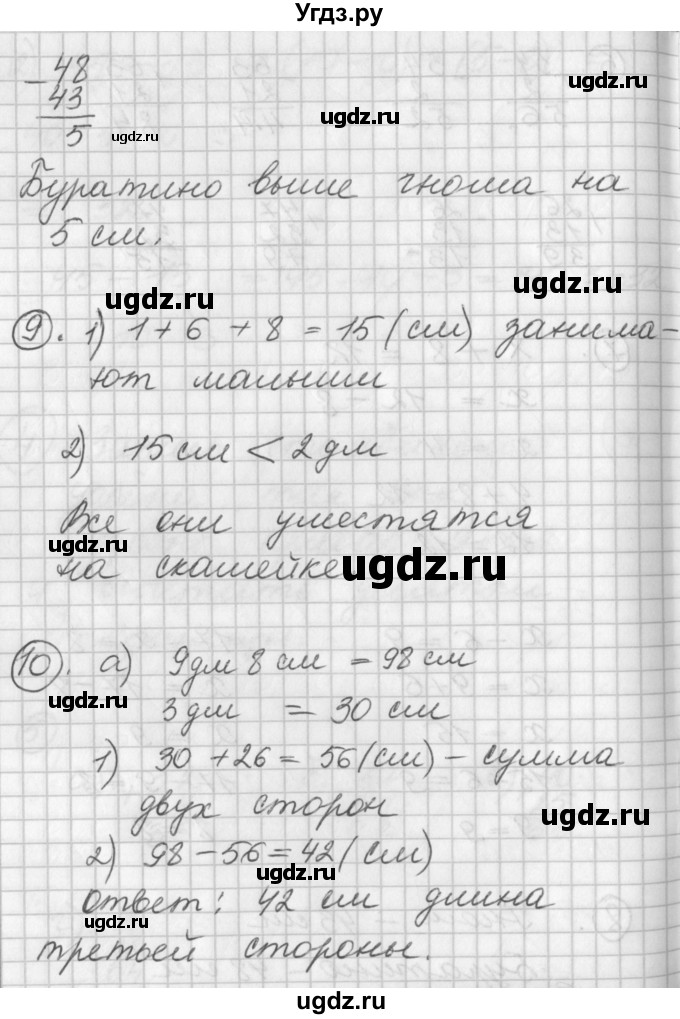 Угдз.ру
- 48
43
5
ugdz.ru
ugdz.ru
ugdz.ru
Буратино выше гнома на
5 см.
ugdz.ru
ugdz.ru
9. 1) 1 + 6 + 8 = 15 (см) занима-
ют малыши
2) 15 см < 2 дм
Все они уместятся
ugdz.ru
на скамейке.
ugdz.ru
10. а) 9 дм 8 см = 98 см
ugdz.ru
3 дм = 30 см
1) 30 + 26 = 56 (см) - сумма
двух сторон
ugdz.ru
2) 98 - 56 = 42 (см)
ugdz.ru
Ответ: 42 см длина
третьей стороны.
ugdz.ru
ugdz.ru